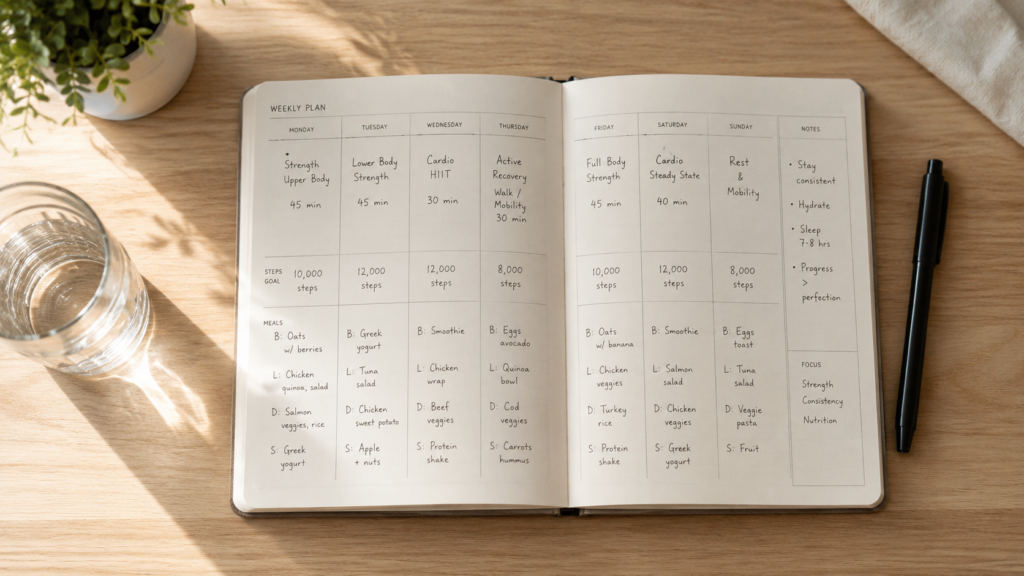 WEEKLY PLAN
MONDAY
Strength
Upper Body
45 min
TUESDAY
Lower Body
Strength
45 min
WEDNESDAY
Cardio
HIIT
30 min
THURSDAY
Active
Recovery
Walk /
Mobility
30 min
FRIDAY
Full Body
Strength
45 min
SATURDAY
Cardio
Steady State
40 min
SUNDAY
Rest
&
Mobility
STEPS
GOAL
10,000
steps
12,000
steps
12,000
steps
8,000
steps
10,000
steps
12,000
steps
8,000
steps
MEALS
B: Oats
w/ berries
L: Chicken
quinoa, salad
D: Salmon
veggies, rice
S: Greek
yogurt
B: Greek
yogurt
L: Tuna
salad
D: Chicken
sweet potato
S: Apple
+ nuts
B: Smoothie
L: Chicken
wrap
D: Beef
veggies
S: Protein
shake
B: Eggs
avocado
L: Quinoa
bowl
D: Cod
veggies
S: Carrots
hummus
B: Oats
w/ banana
L: Chicken
veggies
D: Turkey
rice
S: Protein
shake
B: Smoothie
L: Salmon
salad
D: Chicken
veggies
S: Greek
yogurt
B: Eggs
toast
L: Tuna
salad
D: Veggie
pasta
S: Fruit
NOTES
• Stay
consistent
• Hydrate
• Sleep
7-8 hrs
• Progress
>
perfection
FOCUS
Strength
Consistency
Nutrition